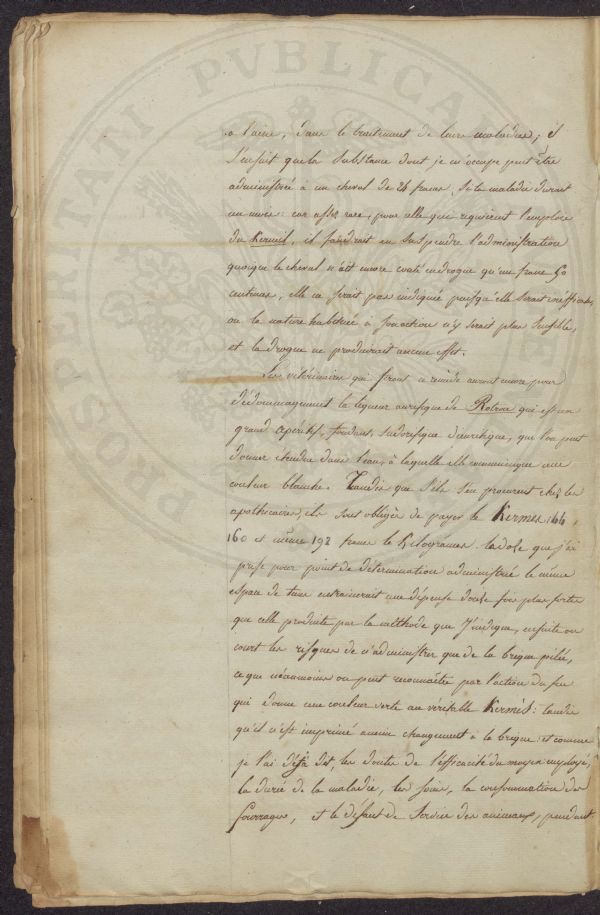 PROSPERITATI PUBLICAE
a l'aine, dans le traitement de leurs maladies; il
s'en suit que la substance dont je m'occupe peut être
administrée à un cheval de 24 francs, si la maladie durait
un mois: car assez rare, pour celle qui requierent l'emploie
du Kermès, il faudrait en suspendre l'administration
quoique le cheval n'ait encore couté en drogue qu'un franc 50
centimes, elle ne serait pas indiquée puisqu'elle serait inéfficace,
ou la nature habituée à son action n'y serait plus sensible,
et la drogue ne produirait aucun effet.
Les vétérinaires qui feront ce remède auront encore pour
dédommagement la liqueur aurifique de Rotrou qui est un
grand aperitif, fondant, sudorifique diurétique, que l'on peut
donner étendue dans l'eau, à laquelle elle communique une
couleur blanche. Tandis que s'ils s'en procurent chez les
apothicaires, ils sont obligés de payer le Kermès 144,
160 et même 192 francs le Kilogramme. la dose que j'ai
prise pour point de détermination administrée le même
espace de tems entrainerait une dépense douze fois plus forte
que celle produite par la methode que j'indique, ensuite on
court les risques de n'administrer que de la brique pilée,
ce que néanmoins on peut reconnaître par l'action du feu
qui donne une couleur verte au véritable Kermès: tandis
qu'il n'est imprimé aucun changement à la brique: et comme
je l'ai déjà dit, les doutes de l'efficacité du moyen employé,
la durée de la maladie, les soins, la consommation des
fourrages, et le defaut de service des animaux, pendant